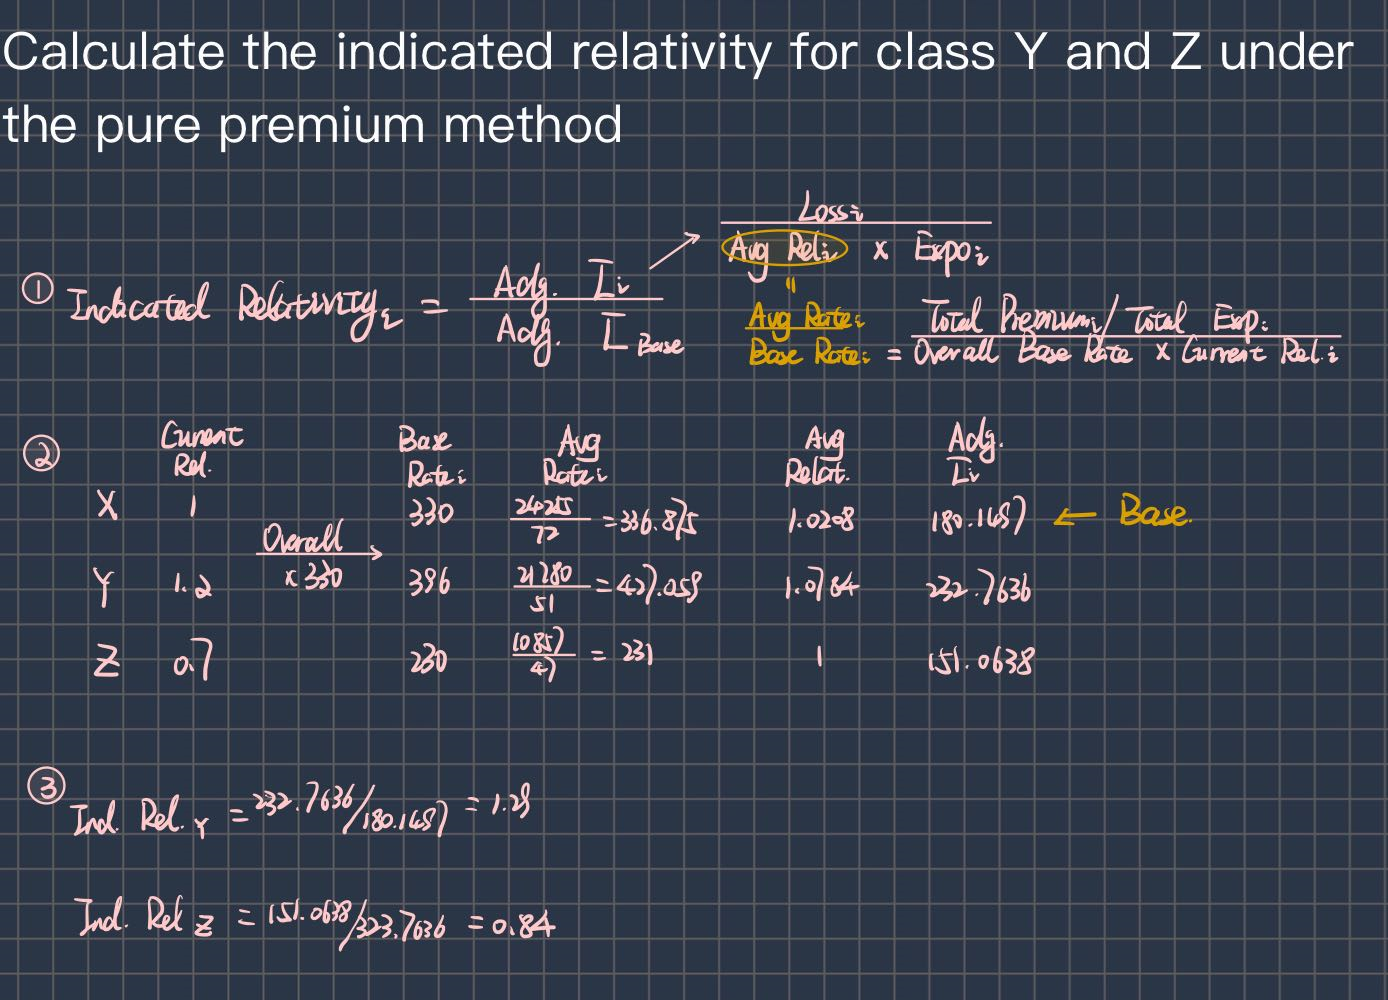 Calculate the indicated relativity for class Y and Z under
the pure premium method
① Indicated Relativity i = Adj. L̅i / Adj. L̅ Base
Loss i / Avg Rel i x Expo i
"
Avg Rate i / Base Rate i = Total Premium i / Total Exp. i / Overall Base Rate x Current Rel. i
② Current Rel. Base Rate i Avg Rate i Avg Relat. Adj. L̅i
X 1 330 24255/72 = 336.875 1.0208 180.1487 ← Base.
Overall x 330
Y 1.2 396 21780/51 = 427.059 1.0784 232.7636
Z 0.7 230 10857/47 = 231 1 151.0638
③ Ind. Rel. Y = 232.7636/180.1487 = 1.29
Ind. Rel Z = 151.0638/323.7636 = 0.84